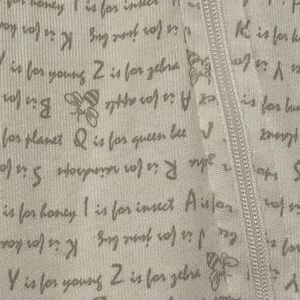 for honey I is for insect
is for june bug K
Y is for young Z is for zebra
A is for apple B is for
for planet Q is for queen bee
R is for raindrops S is for
is for honey I is for insect A is for
J is for june bug K is for
Y is for young Z is for zebra